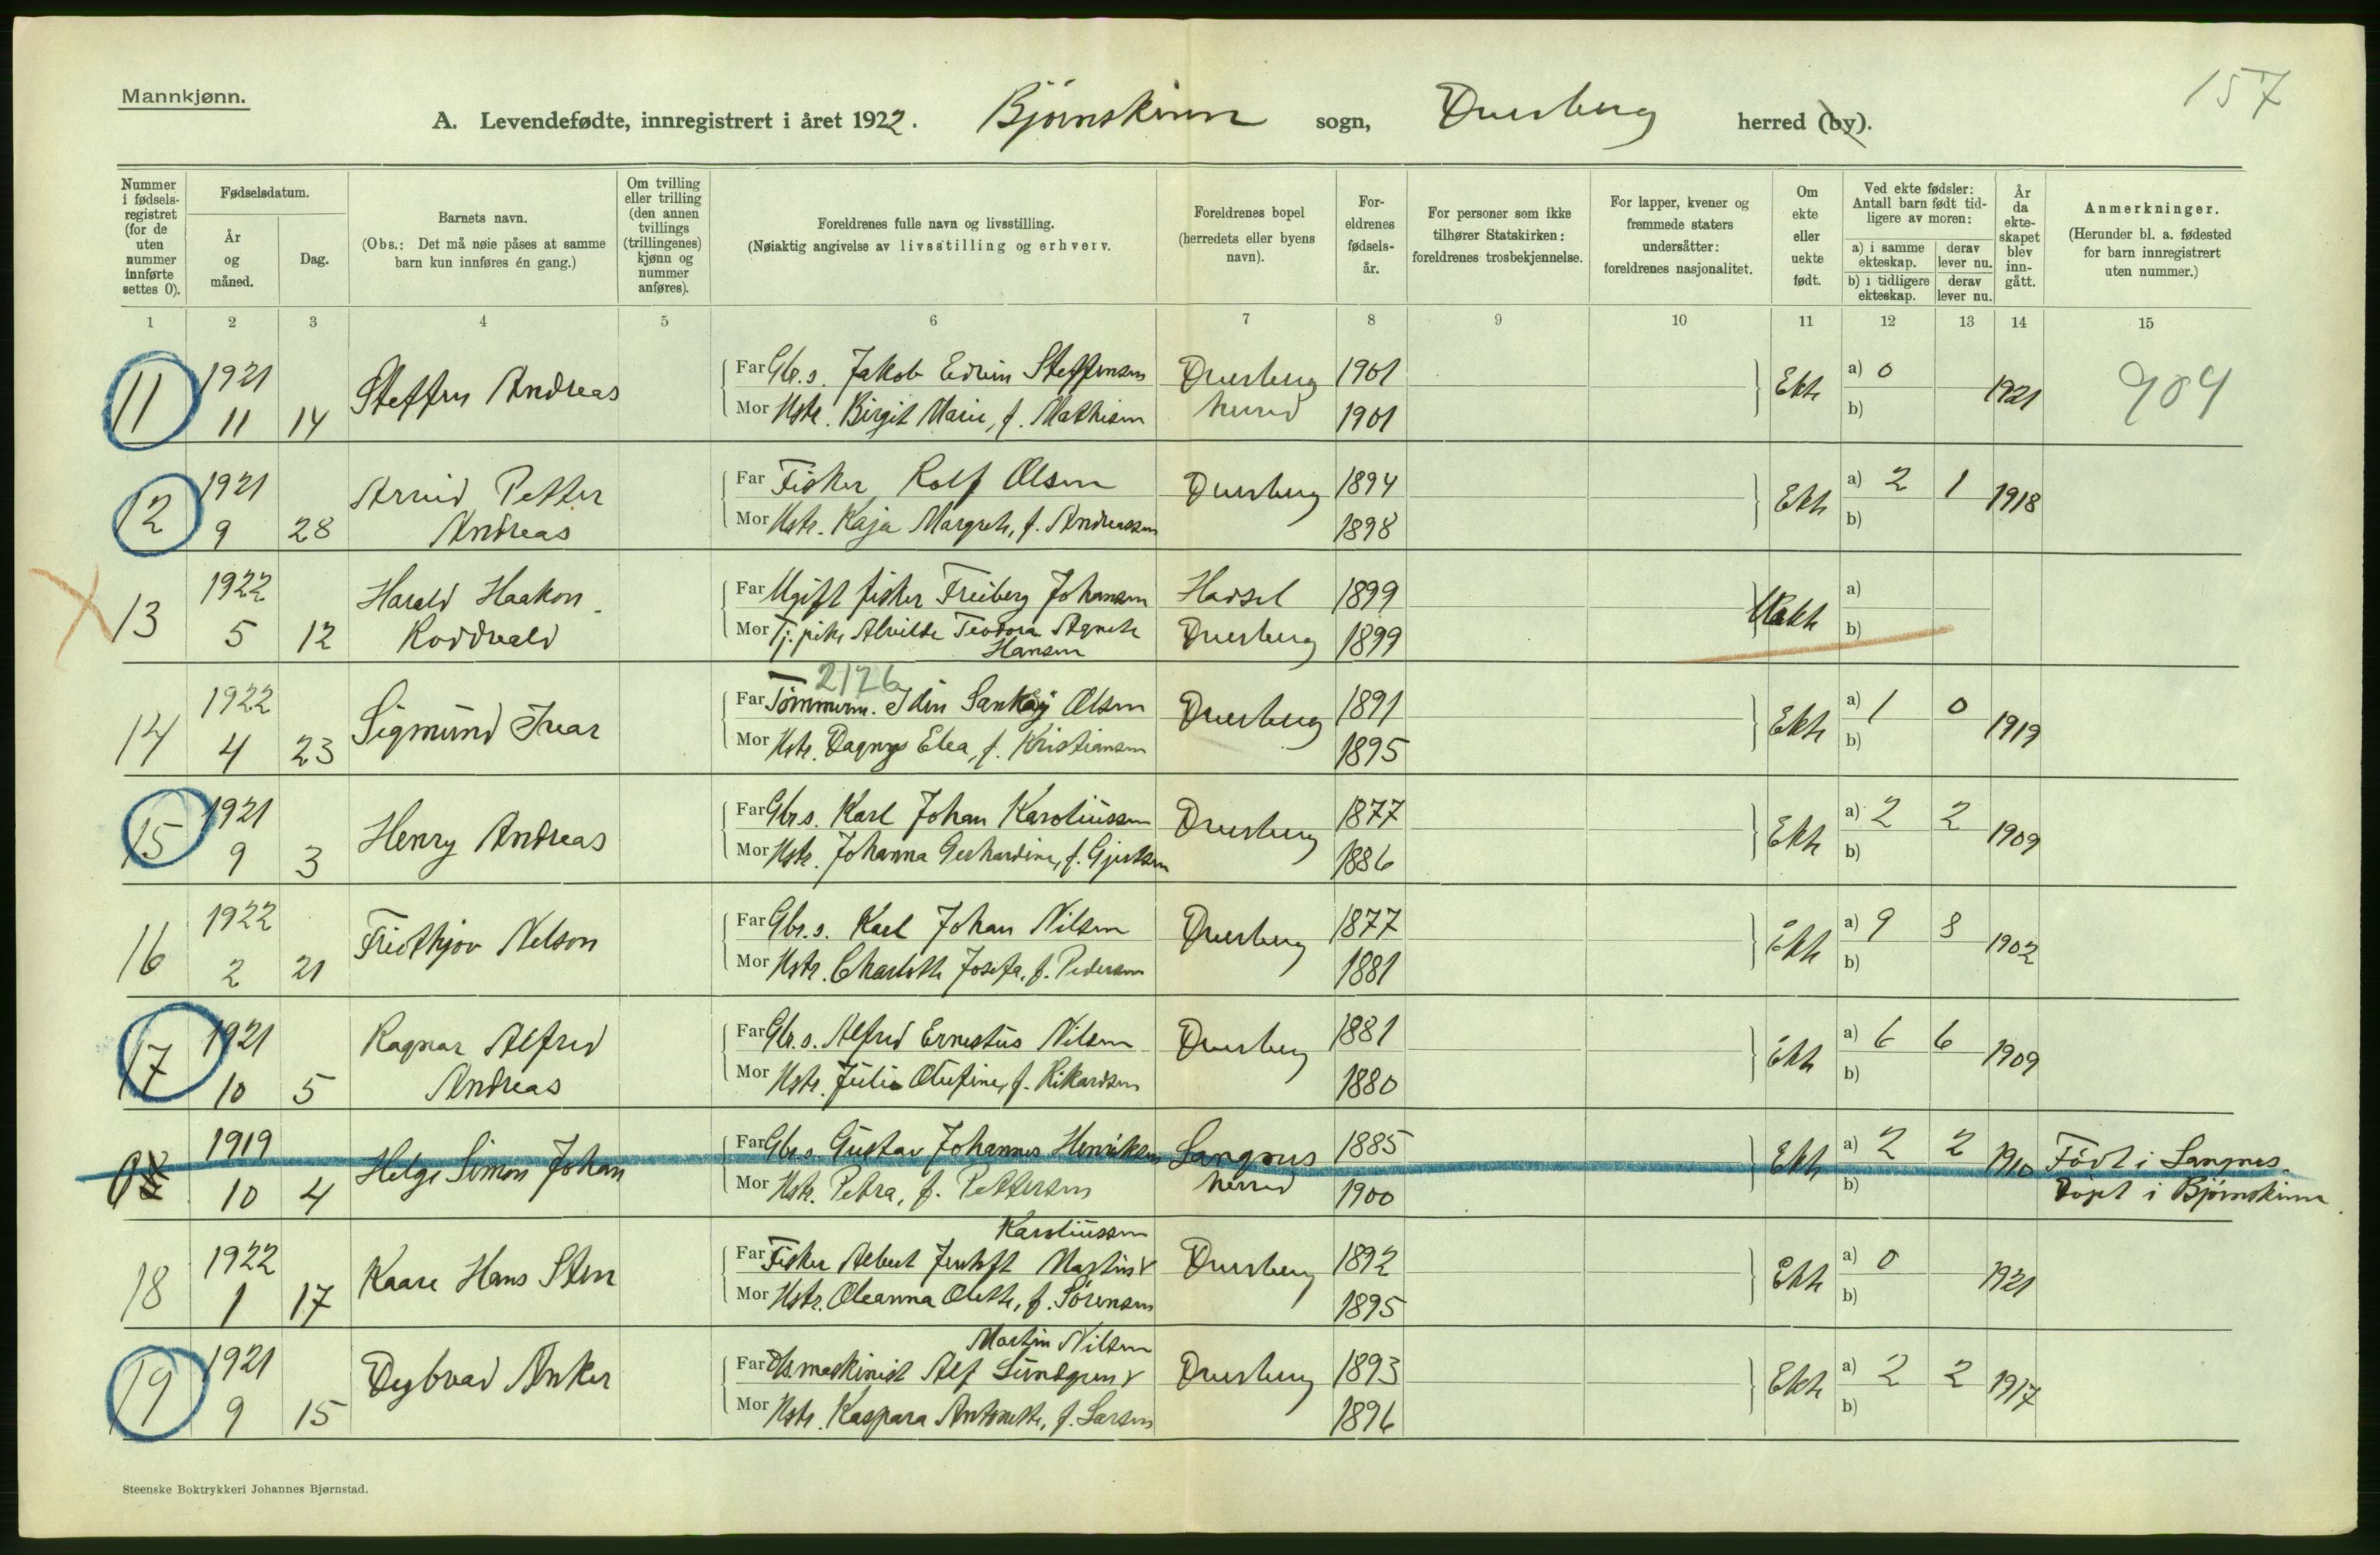 157
Mannkjønn.
A. Levendefødte, innregistrert i året 1922. Bjørnskinn sogn, Dverberg herred (by).
Nummer i fødsels-registret (for de uten nummer innførte settes 0).
Fødselsdatum.
År og måned.
Dag.
Barnets navn.
(Obs.: Det må nøie påses at samme barn kun innføres én gang.)
Om tvilling eller trilling (den annen tvillings (trillingenes) kjønn og nummer anføres).
Foreldrenes fulle navn og livsstilling.
(Nøiaktig angivelse av livsstilling og erhverv.
Foreldrenes bopel (herredets eller byens navn).
For-eldrenes fødsels-år.
For personer som ikke tilhører Statskirken: foreldrenes trosbekjennelse.
For lapper, kvener og fremmede staters undersåtter: foreldrenes nasjonalitet.
Om ekte eller uekte født.
Ved ekte fødsler: Antall barn født tid-ligere av moren:
a) i samme ekteskap. derav lever nu.
b) i tidligere ekteskap. derav lever nu.
År da ekte-skapet blev inn-gått.
Anmerkninger.
(Herunder bl. a. fødested for barn innregistrert uten nummer.)
1 2 3 4 5 6 7 8 9 10 11 12 13 14 15
11 1921 11 14 Steffen Andreas
Far Gbr.s. Jakob Edvin Steffensen Dverberg 1901 Ekte a) 0 1921 904
Mor Hstr. Birgit Marie, f. Mathisen herred 1901 b)
12 1921 9 28 Arvid Petter Andreas
Far Fisker Rolf Olsen Dverberg 1894 Ekte a) 2 1 1918
Mor Hstr. Kaja Margrete, f. Andreassen 1898 b)
13 1922 5 12 Harald Haakon Roddvald
Far Ugift fisker Freiberg Johansen Hadsel 1899 Uekte a)
Mor Tj. pike Alvilde Teodora Agnete Hansen Dverberg 1899 b)
2126
14 1922 4 23 Sigmund Ivar
Far Tømmerm. Idin Sankøy Olsen Dverberg 1891 Ekte a) 1 0 1919
Mor Hstr. Dagny Elea, f. Kristiansen 1895 b)
15 1921 9 3 Henry Andreas
Far Gbr.s. Karl Johan Karoliussen Dverberg 1877 Ekte a) 2 2 1909
Mor Hstr. Johanna Gerhardine, f. Gjertsen 1886 b)
16 1922 2 21 Fridthjov Nelson
Far Gbr.s. Karl Johan Nilsen Dverberg 1877 Ekte a) 9 8 1902
Mor Hstr. Charlotte Josefa, f. Pedersen 1881 b)
17 1921 10 5 Ragnar Alfred Andreas
Far Gbr.s. Alfred Ernestus Nilsen Dverberg 1881 Ekte a) 6 6 1909
Mor Hstr. Julie Olufine, f. Rikardsen 1880 b)
0 1919 10 4 Helge Simon Johan
Far Gbr.s. Gustav Johannes Henriksen Langnes 1885 Ekte a) 2 2 1910 Født i Langnes.
Mor Hstr. Petra, f. Pettersen herred 1900 b) Døpt i Bjørnskinn
Karoliussen
18 1922 1 17 Kaare Hans Sten
Far Fisker Albert Jentoft Martin Dverberg 1892 Ekte a) 0 1921
Mor Hstr. Oleanna Olette, f. Sørensen 1895 b)
Martin Nilsen
19 1921 9 15 Dybvad Anker
Far Ds.maskinist Alf Lundgren Dverberg 1893 Ekte a) 2 2 1917
Mor Hstr. Kaspara Antonette, f. Larsen 1896 b)
Steenske Boktrykkeri Johannes Bjørnstad.